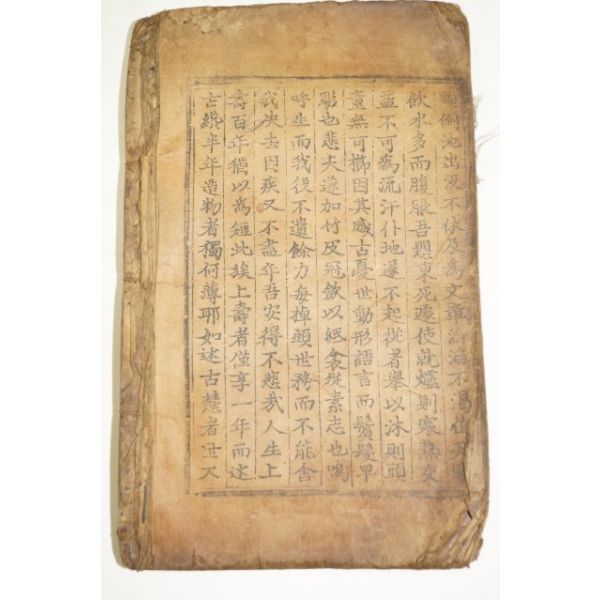 倒池出沒不休及爲文章滔滔不渴
飮水多而腹脹吾愳東死曝使就爐則寒熱交
並不可爲流汗仆地遂不起從者舉以沐則頭
童無可櫛因其感古憂世動形語言而鬢髮早
彫也悲夫遂加竹皮冠斂以紙衾從素志也嗚
呼生而我役不遺餘力每掉頭世務而不能舍
我決去因疾又不盡年吾安得不悲哉人生上
壽百年猶以爲短此埃上壽者僅享一年而述
古纔半年造物者獨何薄耶如述古慧者世又